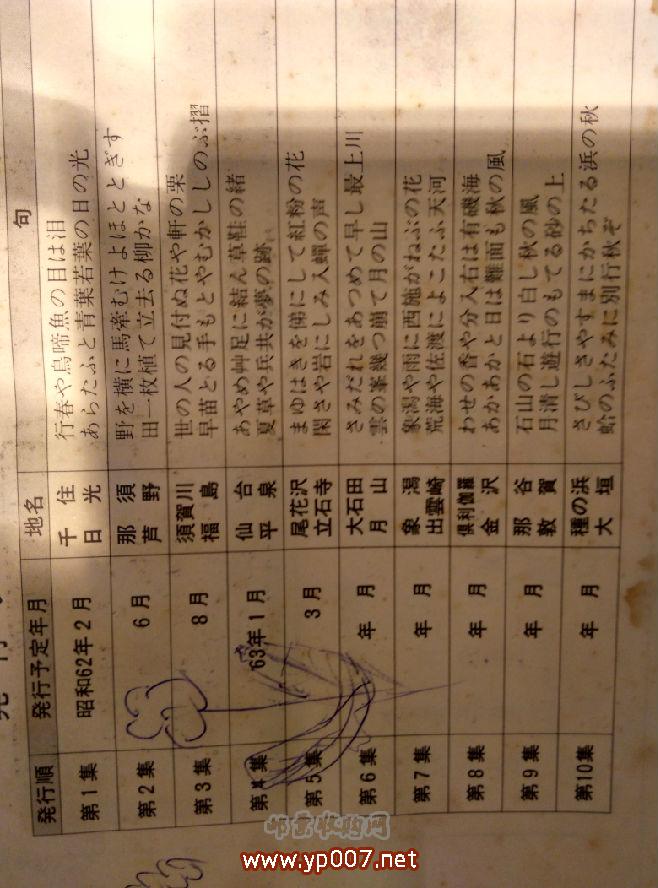 発行順 発行予定年月 地名 句
第1集 昭和62年2月 千住 行春や鳥啼魚の目は泪
日光 あらたふと青葉若葉の日の光
第2集 6月 那須 野を横に馬牽むけよほととぎす
芦野 田一枚植て立去る柳かな
第3集 8月 須賀川 世の人の見付ぬ花や軒の栗
福島 早苗とる手もとやむかししのぶ摺
第4集 '63年1月 仙台 あやめ艸足に結ん草鞋の緒
平泉 夏草や兵共が夢の跡
第5集 3月 尾花沢 まゆはきを俤にして紅粉の花
立石寺 閑さや岩にしみ入蝉の声
第6集 年月 大石田 さみだれをあつめて早し最上川
月山 雲の峯幾つ崩て月の山
第7集 年月 象潟 象潟や雨に西施がねぶの花
出雲崎 荒海や佐渡によこたふ天河
第8集 年月 倶利伽羅 わせの香や分入右は有磯海
金沢 あかあかと日は難面も秋の風
第9集 年月 那谷 石山の石より白し秋の風
敦賀 月清し遊行のもてる砂の上
第10集 年月 種の浜 さびしさやすまにかちたる浜の秋
大垣 蛤のふたみに別行秋ぞ
www.yp007.net